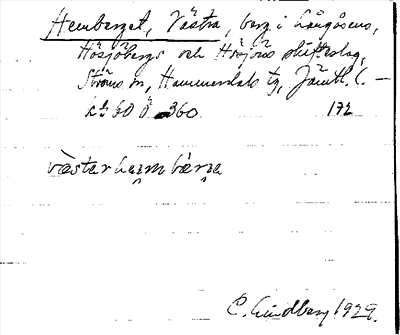 Hemberget, Västra, berg i Långåsens,
Hösjöbergs och Hösjöns skifteslag,
Ströms sn, Hammerdals tg, Jämtl. l. —
bl. 60 Ö 360. 172
västerhæmbærje
C. Lindberg 1929.